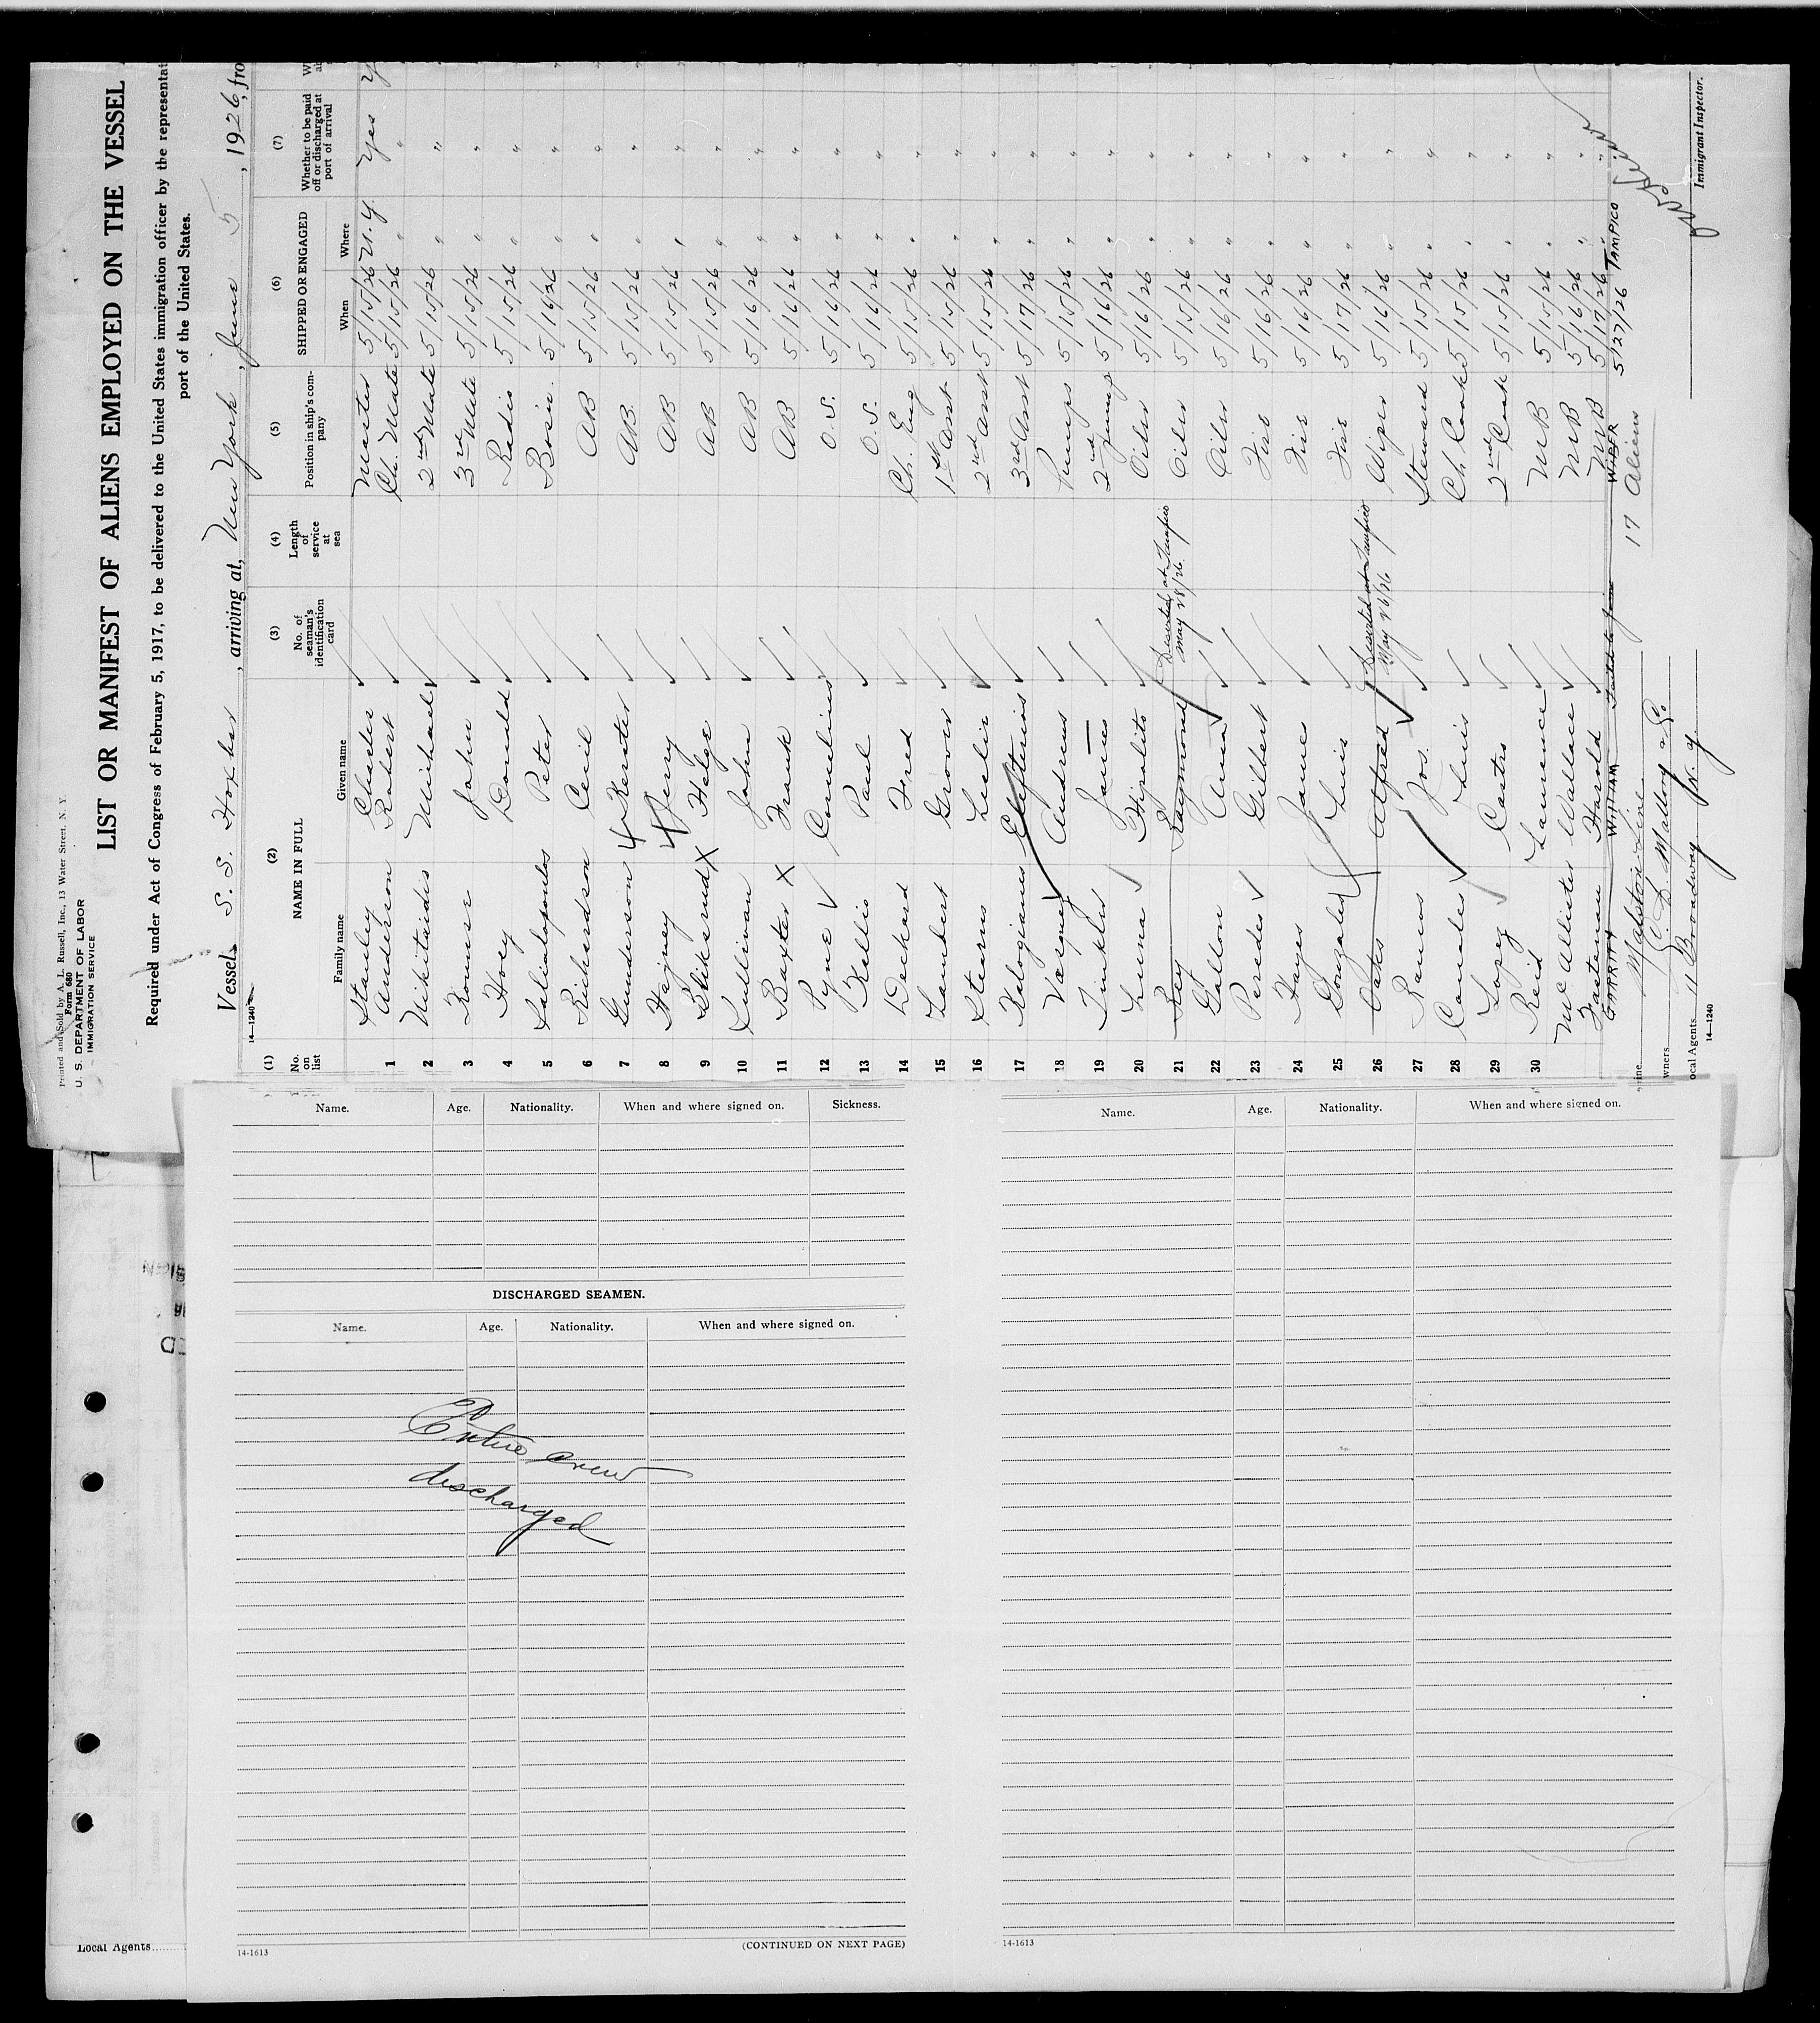 Printed and Sold by A. L. Russell, Inc., 13 Water Street, N. Y.
Form 680
U. S. DEPARTMENT OF LABOR
IMMIGRATION SERVICE
LIST OR MANIFEST OF ALIENS EMPLOYED ON THE VESSEL
Required under Act of Congress of February 5, 1917, to be delivered to the United States immigration officer by the representat
port of the United States.
Vessel S. S. , arriving at, New York, June 5, 1926, fro
14—1240
(1) (2) (3) (4) (5) (6) (7)
No. on list NAME IN FULL No. of seaman's identification card Length of service at sea Position in ship's company SHIPPED OR ENGAGED Whether to be paid off or discharged at port of arrival
Family name Given name When Where
Stanley Charles Master 5/15/26 N. Y. Yes
1 Anderson Robert Ch. Mate 5/15/26 " "
2 Nikitaidis Michael 2nd Mate 5/15/26 " "
3 John 3rd Mate 5/15/26 " "
4 Hoey Donald Radio 5/15/26 " "
5 Saliadopoulos Peter Bosn. 5/16/26 " "
6 Richardson Cecil AB 5/15/26 " "
7 Gunderson Kerster AB 5/15/26 " "
8 Hajney Jerry AB 5/15/26 " "
9 Slikerud X Helge AB 5/15/26 " "
10 Sullivan John AB 5/16/26 " "
11 Baxter X Frank AB 5/16/26 " "
12 Pyne Cornelius O. S. 5/16/26 " "
13 Kellis Paul O. S. 5/16/26 " "
14 Deckard Fred Ch. Eng 5/15/26 " "
15 Lambert Grover 1st Asst 5/15/26 " "
16 Stearns Leslie 2nd Asst 5/15/26 " "
17 Kalogianis Elefterios 3rd Asst 5/17/26 " "
18 Vasquez Andreas Pumps 5/15/26 " "
19 Tinkler James 2nd Pumps 5/16/26 " "
20 Luna Hipolito Oiler 5/16/26 " "
21 Rey Raymond Deserted at Tampico May 28/26. Oiler 5/15/26 " "
22 Gallon Oiler 5/16/26 " "
23 Peredes Gilbert Fir 5/16/26 " "
24 Hayes James Fir 5/16/26 " "
25 Gonzales Luis Fir 5/17/26 " "
26 Oaks Alfred Deserted at Tampico May 26/26 Wiper 5/16/26 " "
27 Ramus Jos. Steward 5/15/26 " "
28 Canales Luis Ch Cook 5/15/26 " "
29 Lopez Castro 2nd Cook 5/15/26 " "
30 Reid Laurence MB 5/15/26 " "
McAllister Wallace MB 5/16/26 " "
Fasteman Harold MB 5/17/26 " "
GARRITY WILLIAM WIPER 5/27/26 TAMPICO
17 Aliens
Line Malston Line
wners C. D. Mallory & Co
ocal Agents 11 Broadway N. Y.
14—1240
Immigrant Inspector.
Name. Age. Nationality. When and where signed on. Sickness.
DISCHARGED SEAMEN.
Name. Age. Nationality. When and where signed on.
Entire crew
discharged
14-1613 (CONTINUED ON NEXT PAGE)
Name. Age. Nationality. When and where signed on.
14-1613
Local Agents